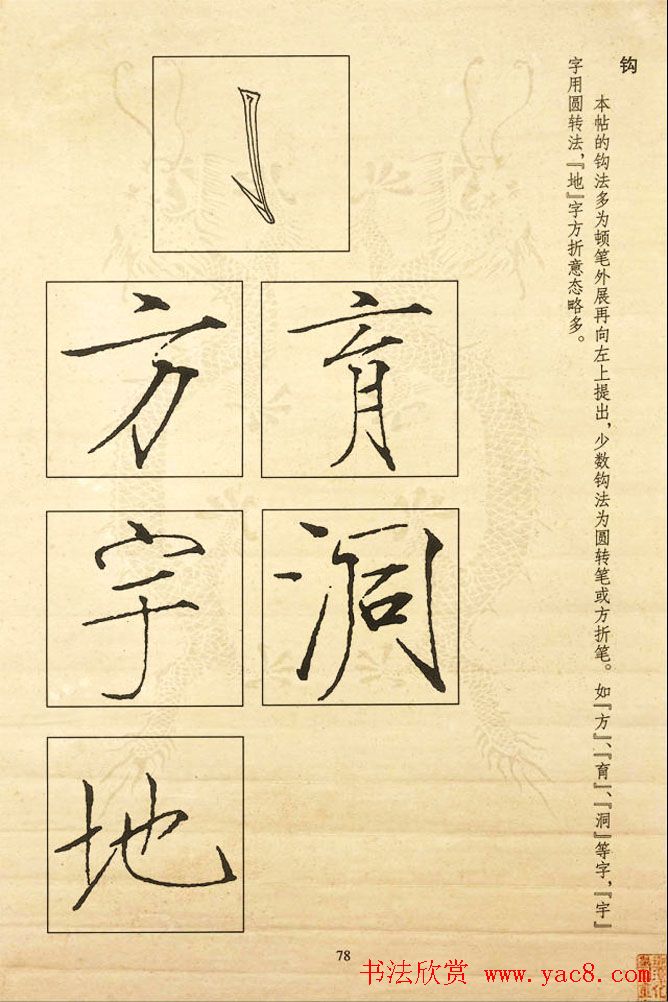 钩
本帖的钩法多为顿笔外展再向左上提出，少数钩法为圆转笔或方折笔。如『方』、『育』、『洞』等字，『宇』
字用圆转法，『地』字方折意态略多。
育
方
洞
宇
地
78
书法欣赏 www.yac8.com